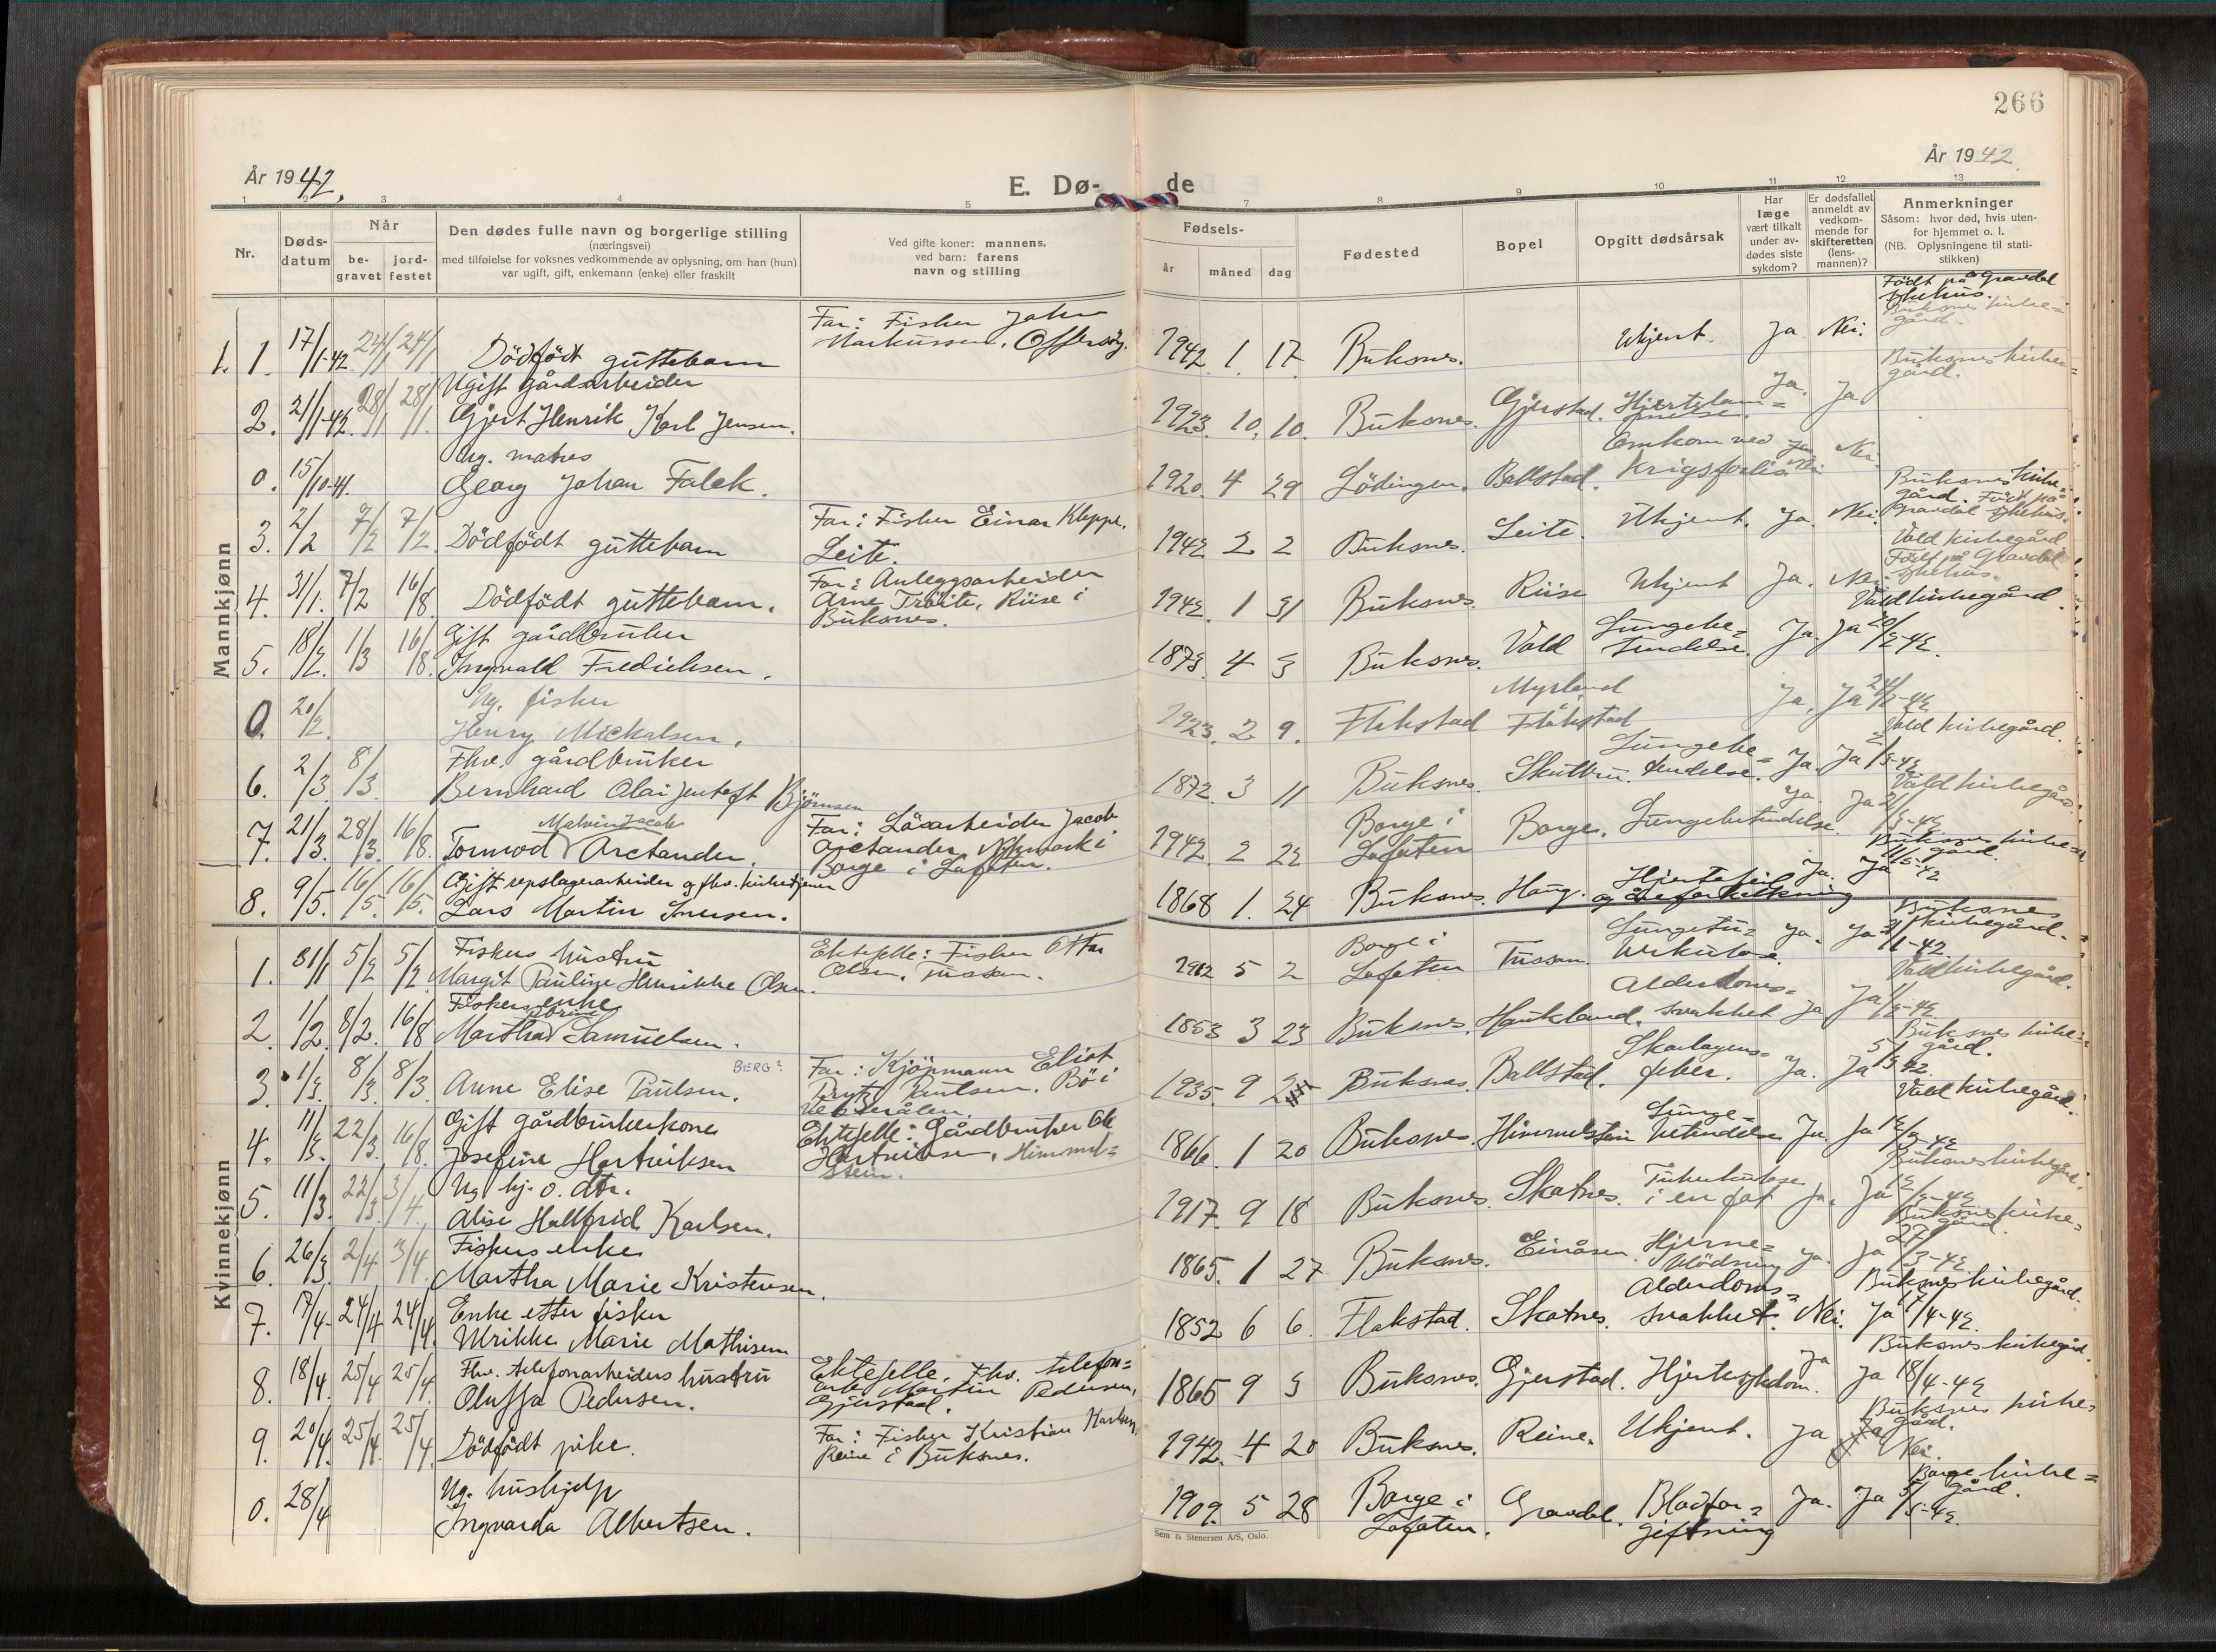 266
År 1942.
År 1942
E. Dø-
de
1 2 3 4 5 7 8 9 10 11 12 13
Nr.
Døds-
datum
Når
be-
gravet
jord-
festet
Den dødes fulle navn og borgerlige stilling
(næringsvei)
med tilføielse for voksnes vedkommende av oplysning, om han (hun)
var ugift, gift, enkemann (enke) eller fraskilt
Ved gifte koner: mannens,
ved barn: farens
navn og stilling
Fødsels-
år måned dag
Fødested
Bopel
Opgitt dødsårsak
Har
læge
vært tilkalt
under av-
dødes siste
sykdom?
Er dødsfallet
anmeldt av
vedkom-
mende for
skifteretten
(lens-
mannen)?
Anmerkninger
Såsom: hvor død, hvis uten-
for hjemmet o. l.
(NB. Oplysningene til stati-
stikken)
Mannkjønn
Født på Gravdal
sykehus.
Buksnes kirke=
gård.
Far: Fisker John
Markussen, Offersøy.
1. 1. 17/1-42 24/1 24/1 Dödfödt guttebarn 1942. 1. 17. Buksnes. Ukjent. Ja Nei.
Ugift gårdsarbeider
Buksnes kirke=
gård.
2. 21/1-42. 28/1 28/1. Gjert Henrik Karl Jensen. 1923. 10. 10. Buksnes. Gjerstad. Hjertelam= Ja. Ja
Ug. matros
Omkom ved Ja Nei.
0. 15/10-41. Georg Johan Falck. 1920. 4 29 Lödingen. Ballstad. Krigsforlis Nei
Buksnes kirke=
gård. Födt på
Gravdal sykehus.
Far: Fisker Einar Kleppe,
Leite.
3. 2/2 7/2 7/2. Dödfödt guttebarn 1942 2 2 Buksnes. Leite. Ukjent. Ja. Nei.
Vold kirkegård
Födt på Gravdal
sykehus.
Far: Anleggsarbeider
Arne Tröite, Riise i
Buksnes.
4. 31/1. 7/2 16/8 Dödfödt guttebarn. 1942. 1 31 Buksnes. Riise Ukjent Ja. Nei.
Gift gårdbruker
Vold kirkegård.
5. 18/2. 1/3 16/8. Ingvald Fredriksen. 1873. 4 3 Buksnes. Vold Lungebe=
tendelse. Ja. Ja 20/2-42.
Ug. fisker
Myrland
0. 20/2. Henry Mickalsen. 1923. 2 9. Flakstad Flakstad Ja. Ja 24/2-42
Fhv. gårdbruker
Vold kirkegård.
6. 2/3 8/3. Bernhard Olai Jentoft Björnsen 1872. 3 11 Buksnes. Skuttvu. Lungebe=
tendelse. Ja. Ja 2/3-42
Vold kirkegård.
Malvin Jacob
Far: Låsarbeider Jacob
Arctander,
Borge i Lofoten.
7. 21/3. 28/3. 16/8. Tormod Arctander. 1942. 2 22 Borge i
Lofoten Borge. Lungebetendelse. Ja. Ja 21/3-42
Gift repslagerarbeider og fhv. kirketjener
Buksnes kirke=
gård.
8. 9/5. 16/5. 16/5. Lars Martin Iversen. 1868 1. 24 Buksnes. Haug. Hjertefeil
og åreforkalkning Ja. Ja 11/5-42
Kvinnekjønn
Fiskers hustru
Ektefelle: Fisker Ottar
Olsen, Tussan.
Buksnes
kirkegård.
1. 31/1 5/2 5/2 Margit Pauline Henrikke Olsen. 1912 5 2 Borge i
Lofoten Tussan. Lungetu=
berkulose. Ja. Ja 31/1-42
Fiskers enke
Vold kirkegård.
2. 1/2. 8/2. 16/8 Martha Samuelsen. 1853 3 23 Buksnes. Haukland. Alderdoms=
svakhet Ja Ja 11/2-42
BERG?
Far: Kjöpmann Eliot
Prytz Paulsen. Bö i
Vesterålen.
Buksnes kirke=
gård.
3. 1/3. 8/3. 8/3 Anne Elise Paulsen. 1935. 9 Buksnes. Ballstad. Skarlagens=
feber. Ja. Ja 5/3-42
Gift gårdbrukerkone
Ektefelle: Gårdbruker Ole
Hartviksen, Himmel=
stein.
Vold kirkegård.
4. 11/3. 22/3. 16/8 Josefine Hartviksen 1866. 1 20 Buksnes. Himmelstein Lunge-
betendelse Ja. Ja 12/3-42
Ug. hj. o. dtr.
Buksnes kirkegård.
5. 11/3. 22/3 3/4. Alise Hallfrid Karlsen. 1917. 9 18 Buksnes. Skotnes. Tuberkulose
i en fot Ja. Ja 12/3-42
Fiskers enke
Buksnes kirke=
gård.
6. 26/3. 2/4 3/4. Martha Marie Kristensen. 1865. 1 27 Buksnes. Einåsen. Hjerne=
blödning Ja. Ja 27/3-42
Enke etter fisker
Buksnes kirkegård.
7. 17/4- 24/4 24/4. Ulrikke Marie Mathisen 1852 6 6. Flakstad. Skotnes. Alderdoms=
svakhet. Nei. Ja 17/4-42.
Fhv. telefonarbeiders hustru
Ektefelle. Fhv. telefon=
arb. Martin Pedersen,
Gjerstad.
Buksnes kirkegård.
8. 18/4. 25/4 25/4. Oluffa Pedersen. 1865 9 3 Buksnes. Gjerstad. Hjertesykdom. Ja Ja 18/4-42
Far: Fisker Kristian Karlsen,
Reine i Buksnes.
Buksnes kirke=
gård.
9. 20/4. 25/4. 25/4. Dödfödt pike. 1942. 4 20 Buksnes. Reine. Ukjent. Ja Nei.
Ug. hushjelp
Borge kirke=
gård.
0. 28/4 Ingvarda Albertsen. 1909. 5 28 Borge i
Lofoten. Gravdal. Blodfor=
giftning Ja. Ja 5/5-42.
Sem & Stenersen A/S, Oslo.